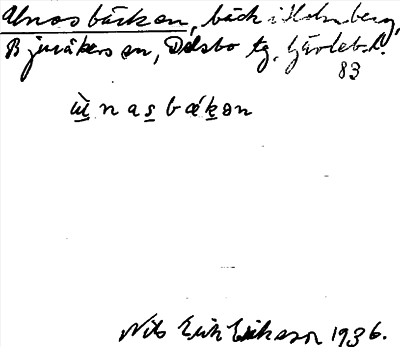 Unosbäcken, bäck i Holmberg,
Bjuråkers sn, Delsbo tg, Gävlebl.
83
ùnasbákən
Nils Erik Eriksson 1936.